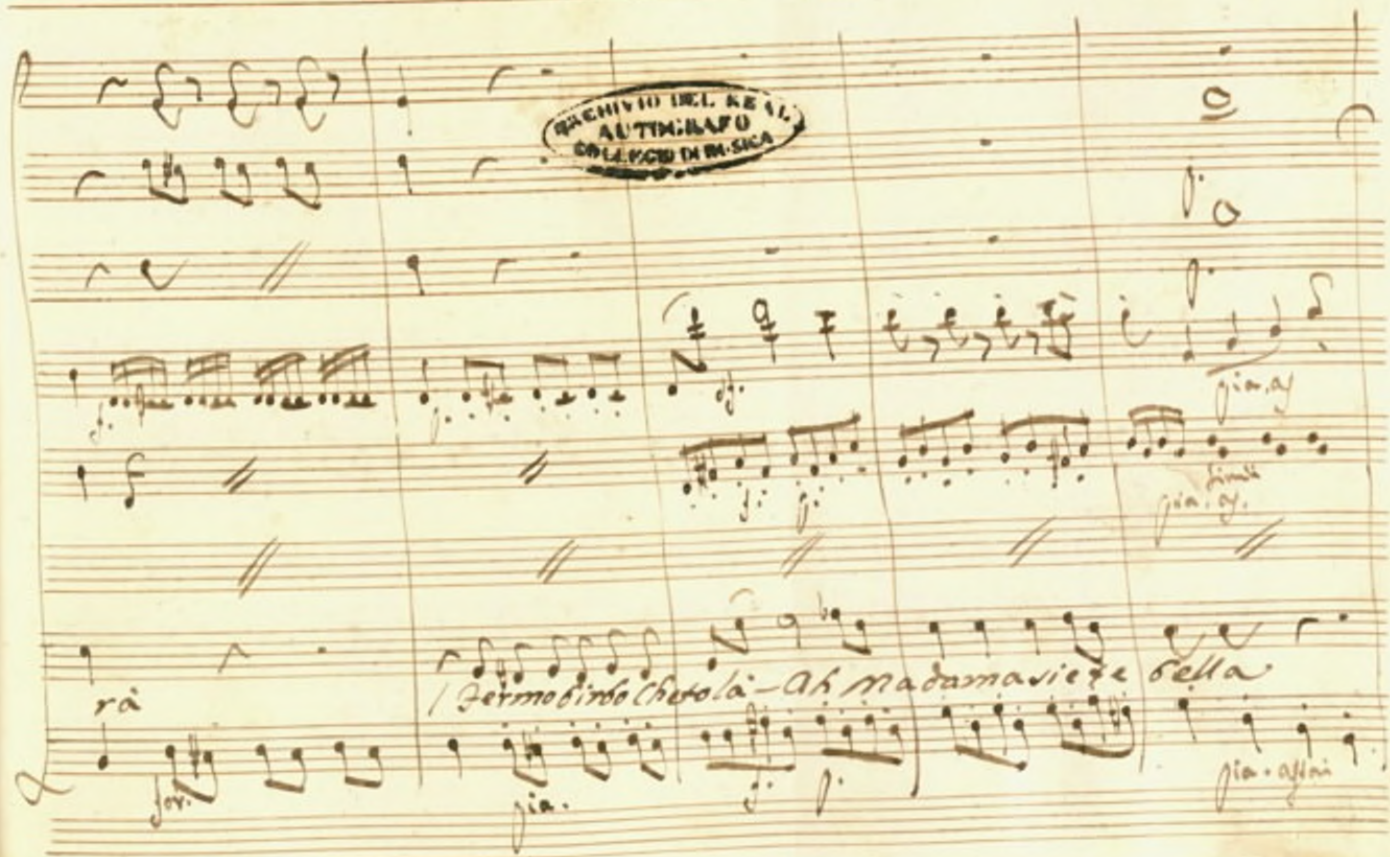 ARCHIVIO DEL REAL
AUTOGRAFO
COLLEGIO DI MUSICA
f. p. sf. pia. as
f: p. simili
pia. as.
rà Fermo birbo Cheto là - Ah Madama siete bella
for. pia. f. p. pia. assai